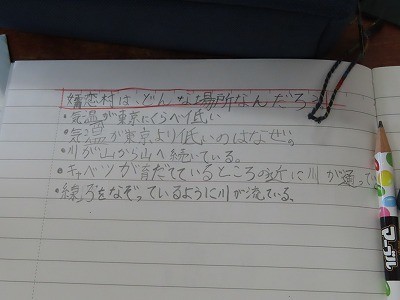 嬬恋村は、どんな場所なんだろう
・気温が東京にくらべ低い
・気温が東京より低いのはなぜ。
・川が山から山へ続いている。
・キャベツが育だてているところの近に川が通って
・線ろをなぞっているように川が流ている、
マーブル